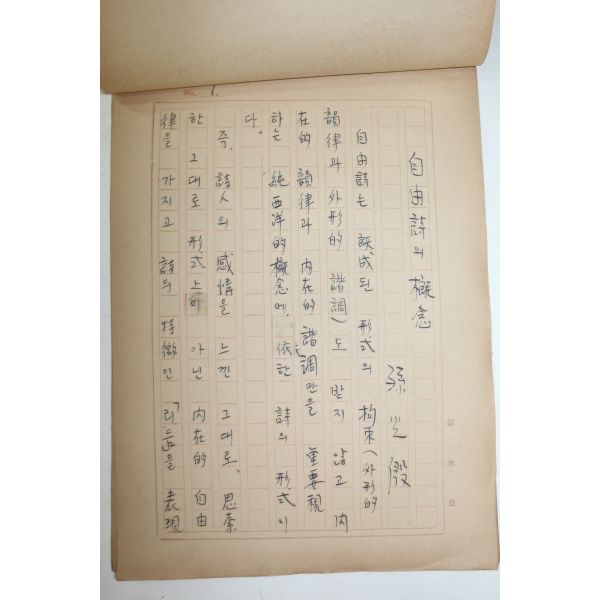 No. 1.
自由詩의 槪念
孫光殷
自由詩는 旣成된 形式의 拘束(外形的
韻律과 外形的 諧調)도 받지 않고 內
在的 韻律과 內在的 諧調만을 重要視
하는 純西洋的 槪念에 依한 詩의 形式이
다.
즉, 詩人의 感情을 느낀 그대로, 思索
한 그대로 形式上이 아닌 內在的 自由
律을 가지고 詩의 特徵인 「리듬」을 表現